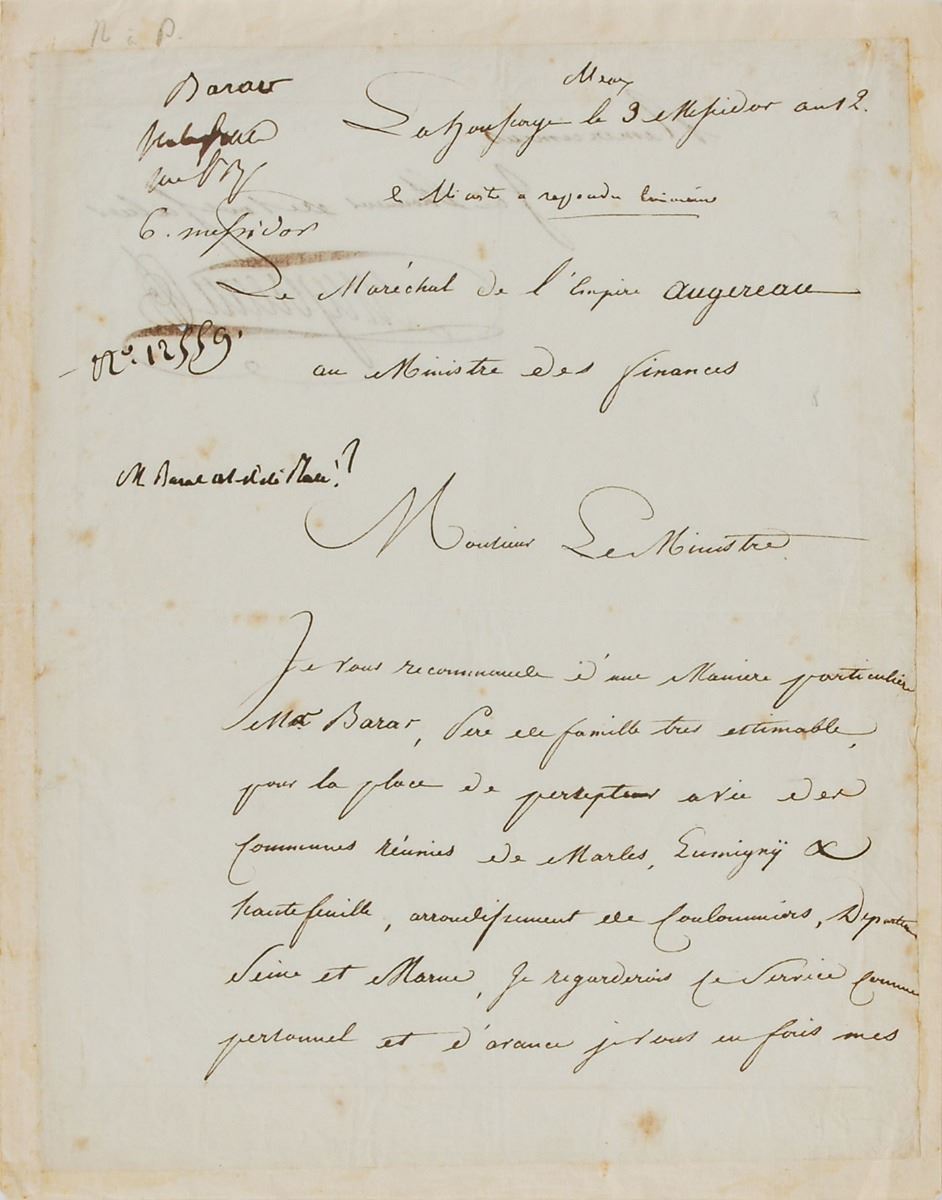 N à P.
Barat
Meaux
La houssaye le 3 Messidor an 12.
le Ministre a repondu
6. messidor
Le Maréchal de l'Empire augereau
N.° 12559.
au Ministre des finances
M Barat
Monsieur Le Ministre
Je vous recommande d'une Maniere particuliere
Mr Barat, Pere de famille tres estimable,
pour la place de percepteur a vie des
Communes réunies de Marles, Lumigny &
hautefeuille, arrondissement de Coulommiers, Departem
Seine et Marne, Je regarderois ce Service comme
personnel et d'avance je vous en fais mes